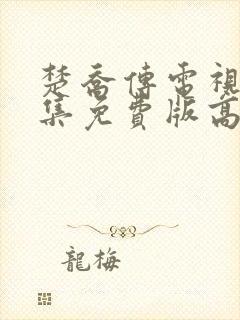 楚喬傳電視
集免費版高
龍梅